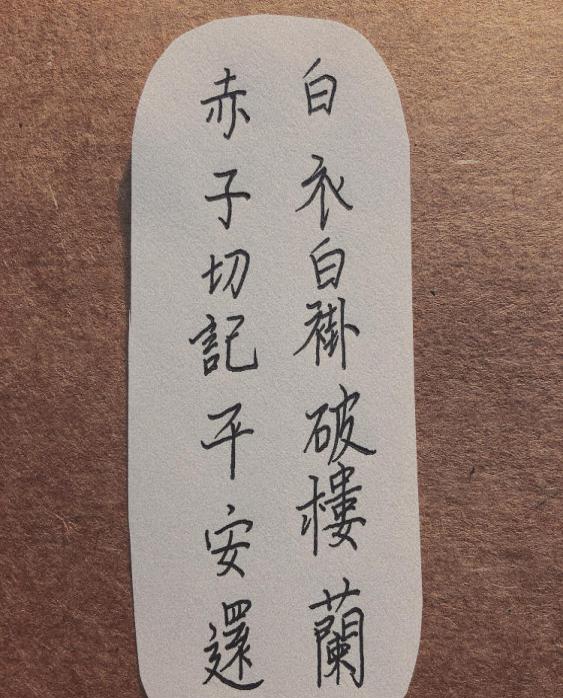 白衣白褂破樓蘭
赤子切記平安還